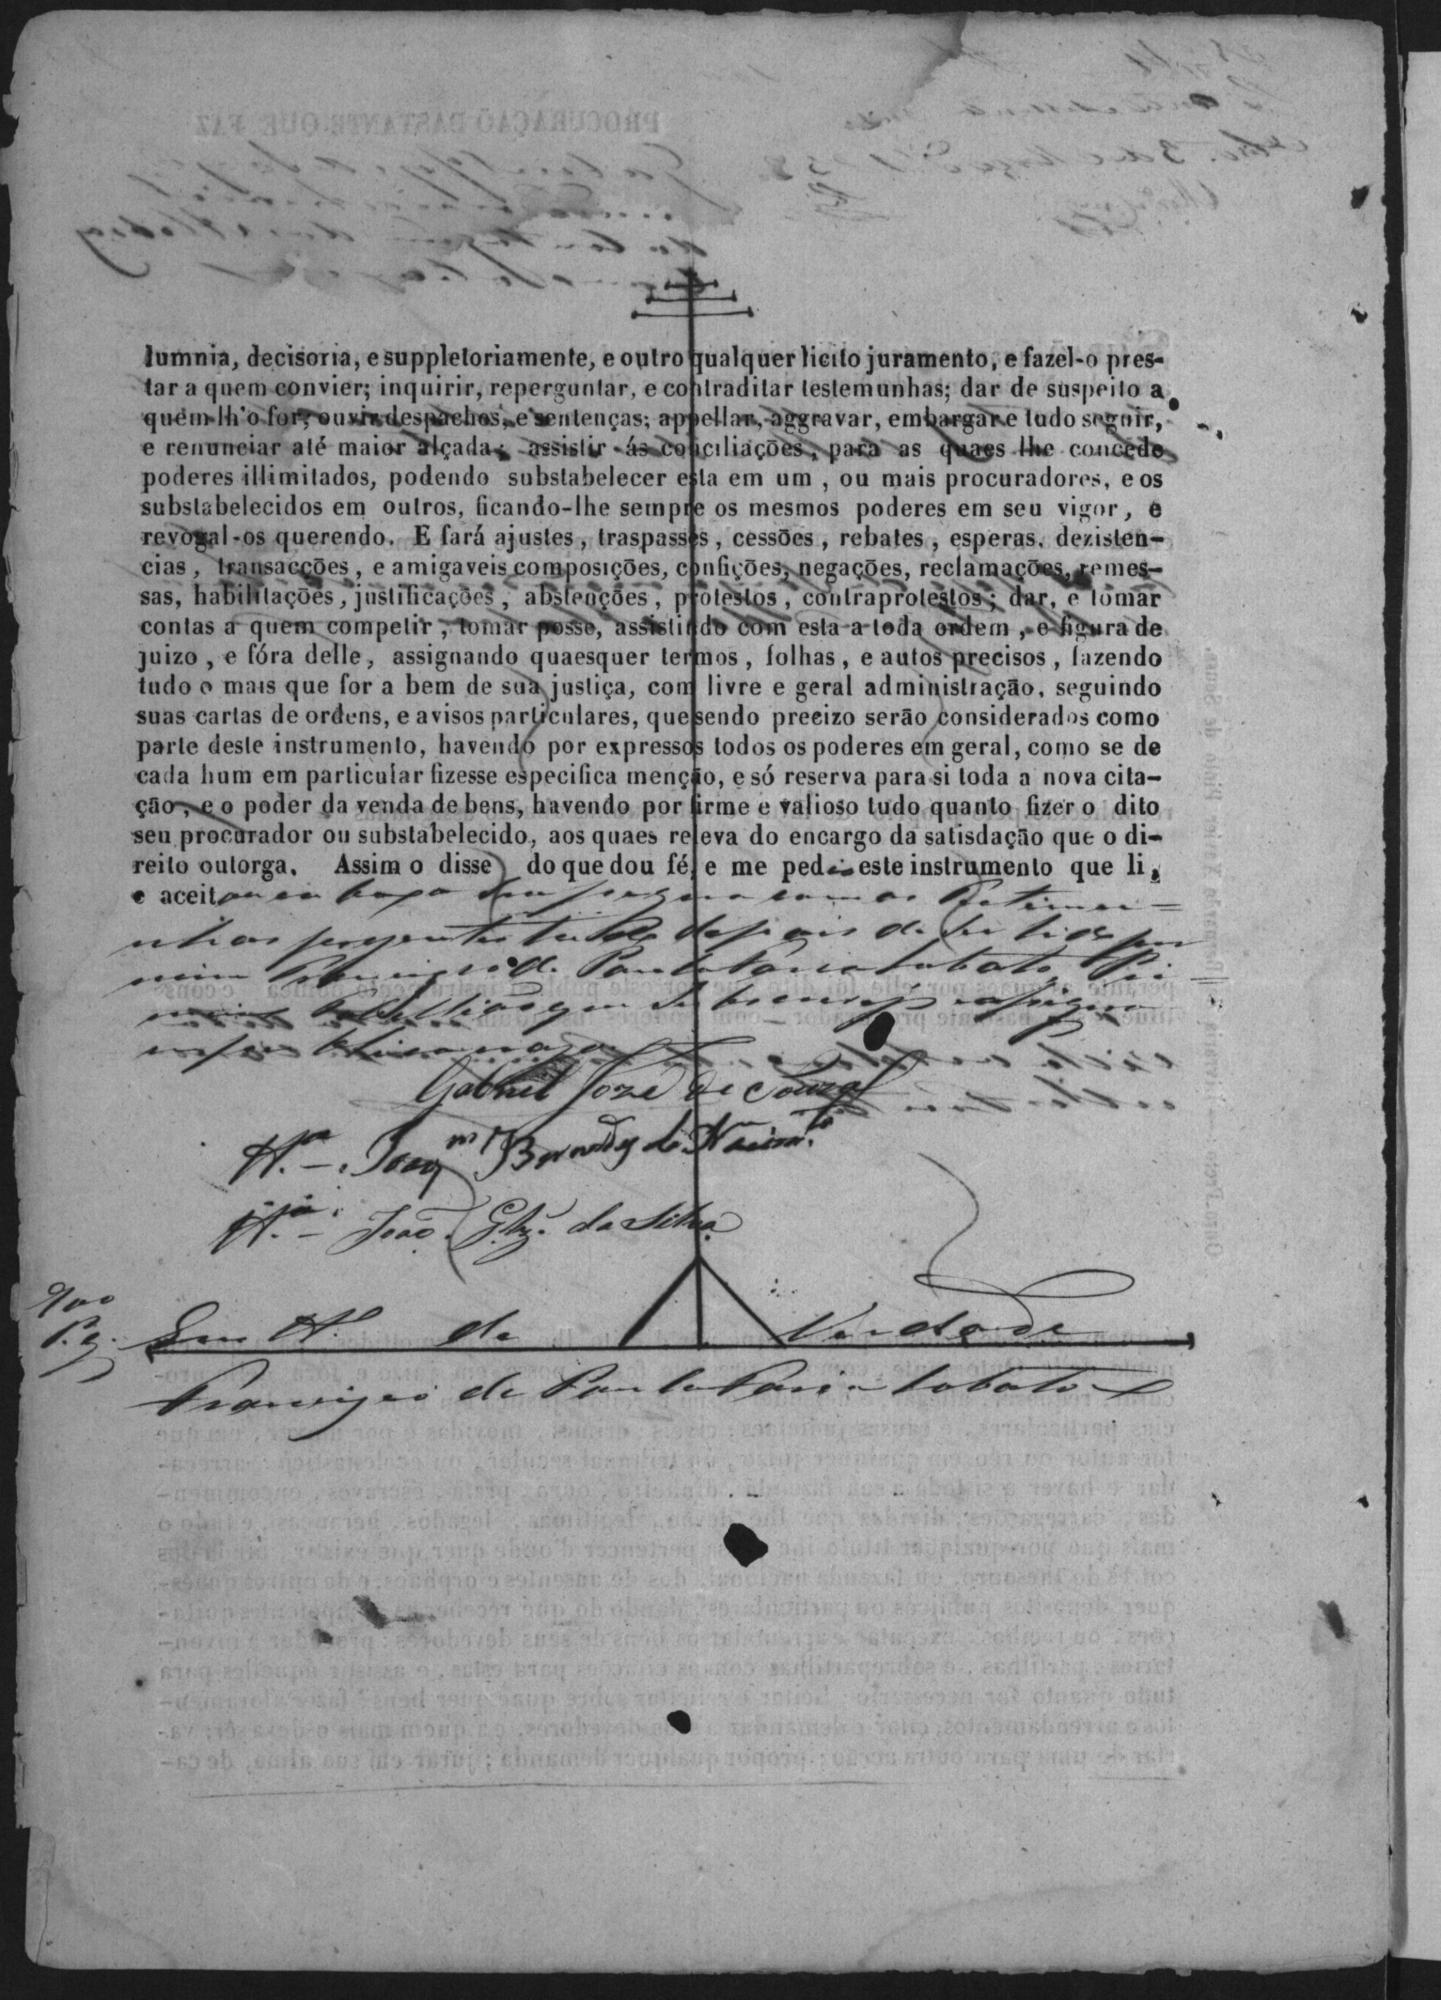 lumnia, decisoria, e suppletoriamente, e outro qualquer licito juramento, e fazel-o pres-
tar a quem convier; inquirir, reperguntar, e contraditar testemunhas; dar de suspeito a
quem lh'o for; ouvir despachos, e sentenças; appellar, aggravar, embargar e tudo seguir,
e renunciar até maior alçada; assistir ás conciliações, para as quaes lhe concede
poderes illimitados, podendo substabelecer esta em um, ou mais procuradores, e os
substabelecidos em outros, ficando-lhe sempre os mesmos poderes em seu vigor, e
revogal-os querendo. E fará ajustes, traspasses, cessões, rebates, esperas, dezisten-
cias, transacções, e amigaveis composições, confições, negações, reclamações, remes-
sas, habilitações, justificações, abstenções, protestos, contraprotestos; dar, e tomar
contas a quem competir, tomar posse, assistindo com esta a toda ordem, e figura de
juizo, e fóra delle, assignando quaesquer termos, folhas, e autos precisos, fazendo
tudo o mais que for a bem de sua justiça, com livre e geral administração, seguindo
suas cartas de ordens, e avisos particulares, que sendo precizo serão considerados como
parte deste instrumento, havendo por expressos todos os poderes em geral, como se de
cada hum em particular fizesse especifica menção, e só reserva para si toda a nova cita-
ção, e o poder da venda de bens, havendo por firme e valioso tudo quanto fizer o dito
seu procurador ou substabelecido, aos quaes releva do encargo da satisdação que o di-
reito outorga. Assim o disse do que dou fé, e me pedio este instrumento que li,
e aceitou
depois de ser lido por
mim Francisco de Paula Faria Lobato Pri-
Gabriel Joze de Souza
T.ª — Joaq.m Bernardes do Nascim.to
T.ª — João Glz. da Silva
Em T. de Verdade
Francisco de Paula Faria Lobato